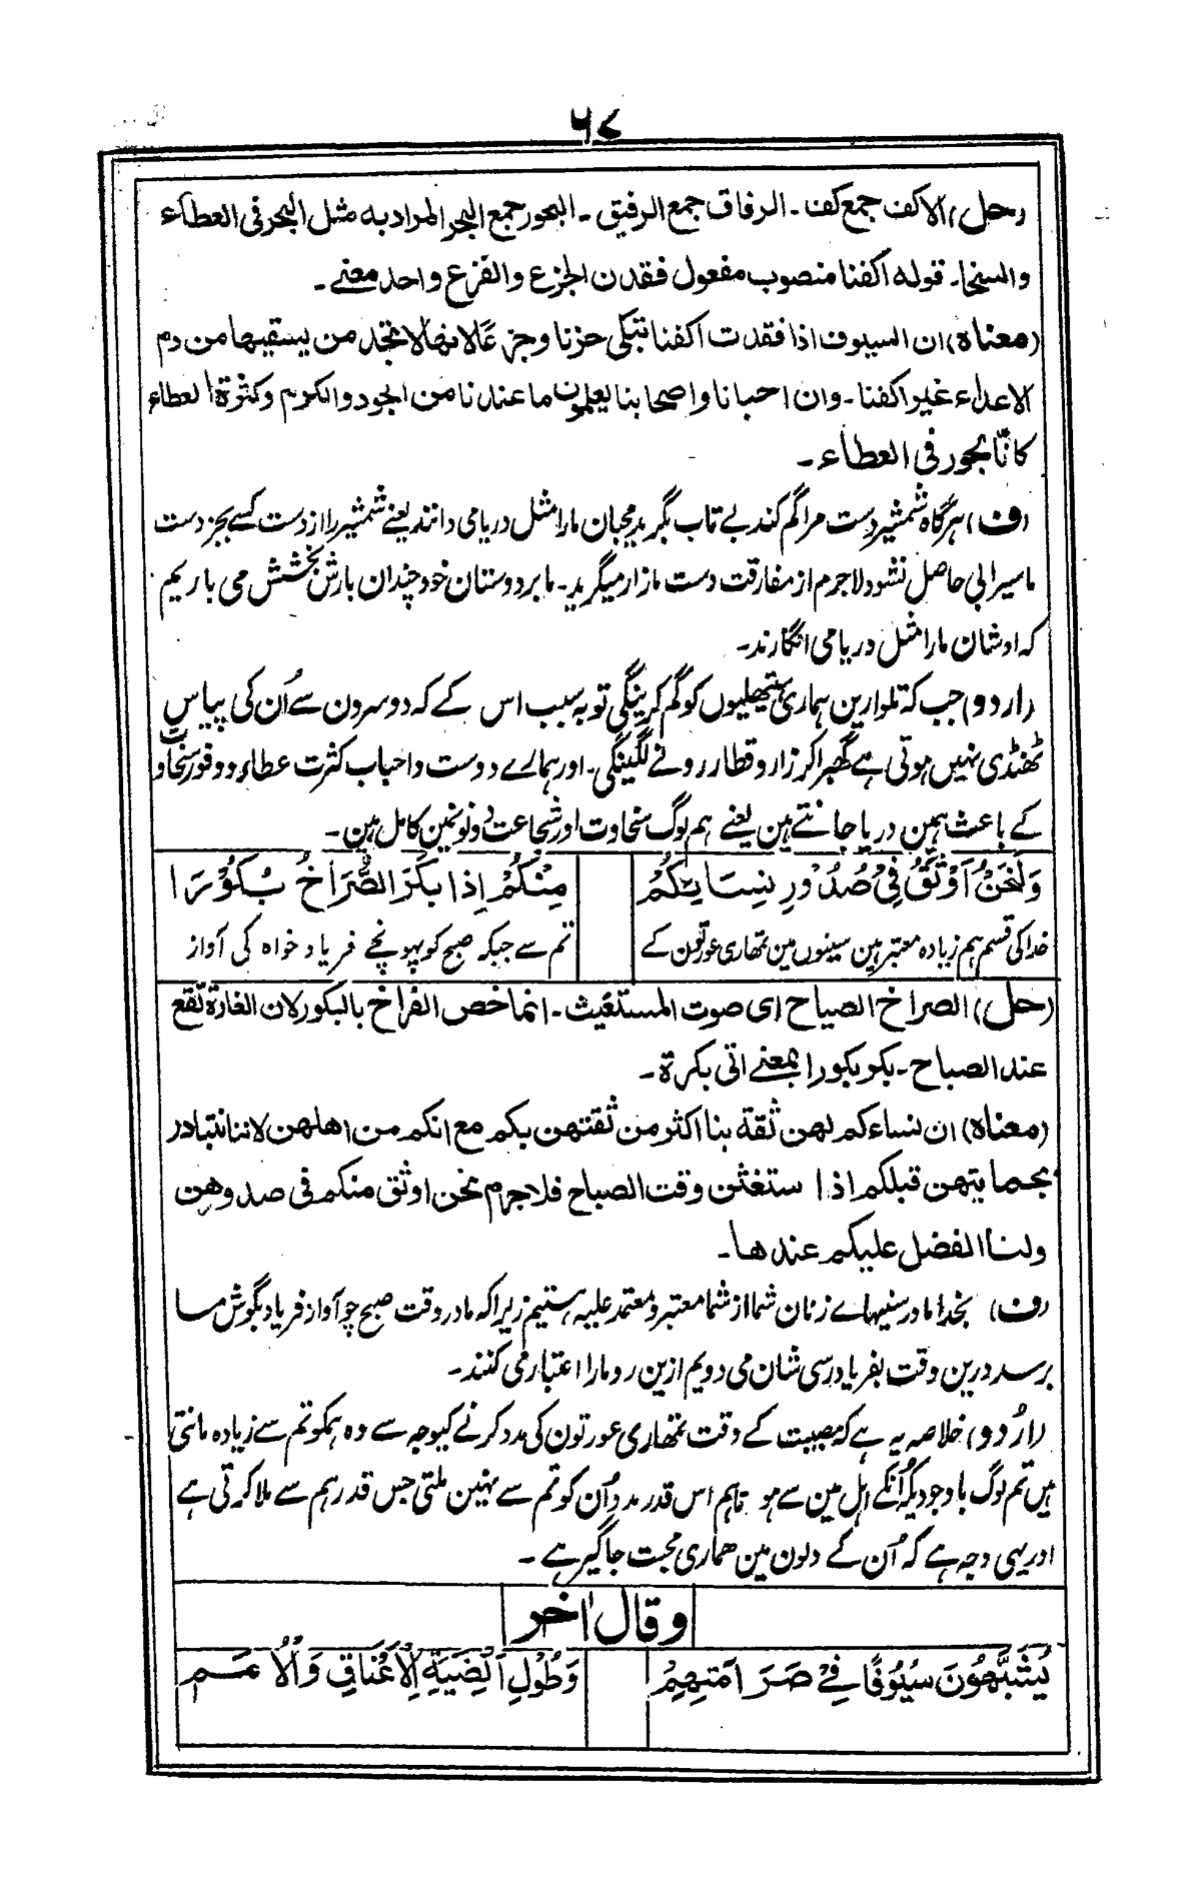 ۶۷
(حل) الاکف جمع کف ۔ الرفاق جمع الرفیق ۔ البحور جمع البحر المراد به مثل البحر فی العطاء
والسخا۔ قوله اکفنا منصوب مفعول فقدن الجزع والفزع واحد معنے ۔
(معناه) ان السیوف اذا فقدت اکفنا تبکی حزنا وجزعا لانها لا تجد من یسقیها من دم
الاعداء غیر اکفنا ۔ وان احبانا واصحابنا یعلمون ما عندنا من الجود والکرم وکثرة العطاء
کانا بحور فی العطاء ۔
(ف) هرگاه شمشیر دست مرا گم کند بے تاب بگرید محبان مارا مثل دریا می دانند یعنے شمشیر را از دست کسے بجز دست
ما سیرابی حاصل نشود لاجرم از مفارقت دست ما زار میگرید ۔ ما بر دوستان خود چندان بارش بخشش می باریم
که اوشان مارا مثل دریا می انگارند۔
(اردو) جب کہ تلوارین ہماری ہتھیلیوں کو گم کرینگی تو بہ سبب اس کے کہ دوسرون سے اُن کی پیاس
ٹھنڈی نہیں ہوتی ہے گھبرا کر زار و قطار رونے لگینگی ۔ اور ہمارے دوست و احباب کثرت عطاء و وفور سخاوت
کے باعث ہمین دریا جانتے ہین یعنے ہم لوگ سخاوت اور شجاعت دونونمین کامل ہین ۔
وَلَنَحْنُ اَوْثَقُ فِیْ صُدُوْرِ نِسَایِٔکُمْ مِنْکُمْ اِذَا بَکَرَ الصُّرَاخُ بُکُوْرَا
خدا کی قسم ہم زیادہ معتبر ہین سینوں مین تمھاری عورتون کے تم سے جبکہ صبح کو پہونچے فریاد خواہ کی آواز
(حل) الصراخ الصیاح ای صوت المستغیث ۔ انما خص الفراخ بالبکور لان الغارة تقع
عند الصباح ۔ بکر بکورا بمعنے اتی بکرة ۔
(معناه) ان نساءکم لهن ثقة بنا اکثر من ثقتهن بکم مع انکم من اهلهن لاننا نتبادر
بحمایتهن قبلکم اذا ستغثن وقت الصباح فلاجرم نحن اوثق منکم فی صدوهن
ولنا الفضل علیکم عندها ۔
(ف) بخدا ما در سنیهاے زنان شما از شما معتبر و معتمد علیه هستیم زیرا که ما در وقت صبح چو آواز فریاد بگوش ما
برسد درین وقت بفریادرسی شان می دویم ازین رو مارا اعتبار می کنند ۔
(اُردو) خلاصہ یہ ہے کہ مصیبت کے وقت تمھاری عورتون کی مدد کرنے کیوجہ سے وہ ہمکو تم سے زیادہ مانتی
ہیں تم لوگ باوجودیکہ اُنکے اہل مین سے ہو تاہم اس قدر مدد اُن کو تم سے نہین ملتی جس قدر ہم سے ملا کرتی ہے
اور یہی وجہ ہے کہ اُن کے دلون مین ہماری محبت جاگیر ہے ۔
وقال اٰخر
یُشَبَّهُوْنَ سُیُوْفًا فِیْ صَرَامَتِهِمْ وَطُوْلِ اَنْضِیَةِ الْاَعْنَاقِ وَالْاُمَمِ